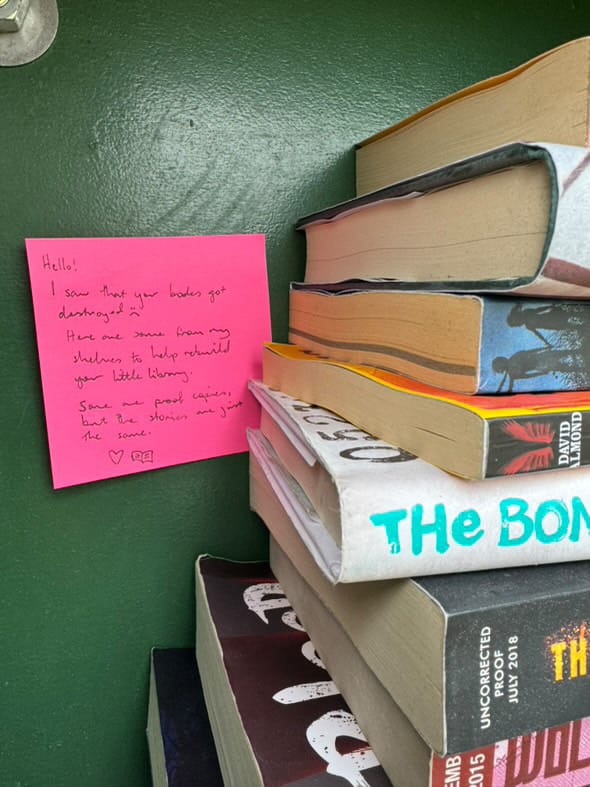 Hello!
I saw that your books got
destroyed
Here are some from my
shelves to help rebuild
your little library.
Some are proof copies,
but the stories are just
the same.
DAVID
ALMOND
THE BON
UNCORRECTED
PROOF
JULY 2018
TH
EMB
2015